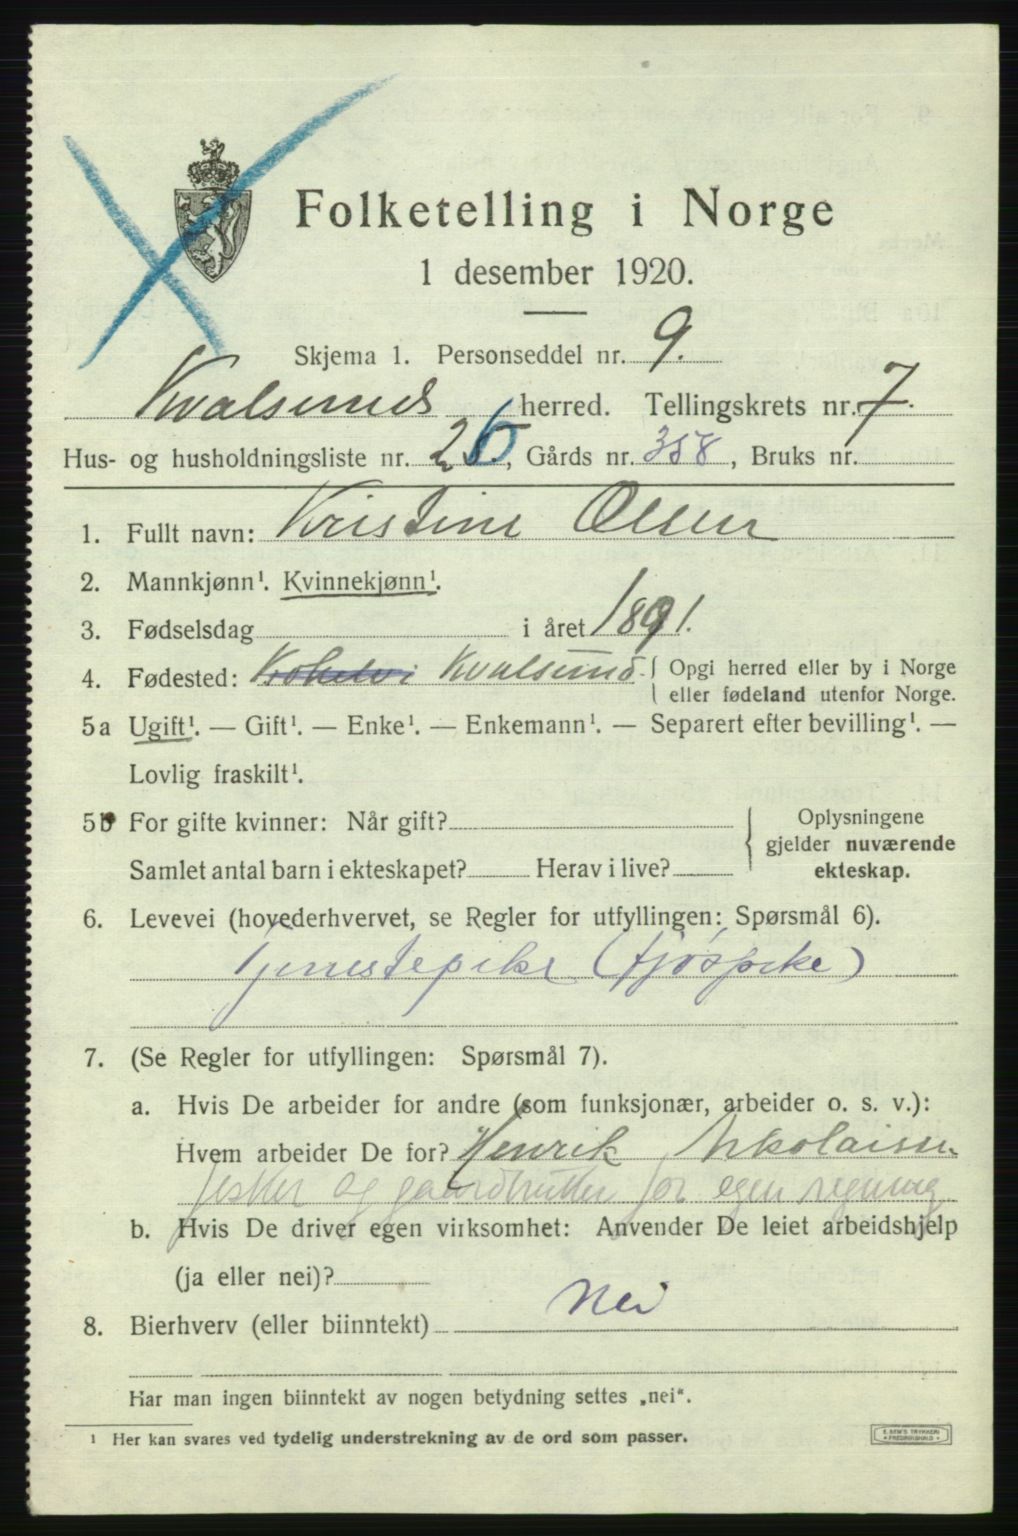 Folketelling i Norge
1 desember 1920.
Skjema 1. Personseddel nr. 9.
Kvalsund herred. Tellingskrets nr. 7.
Hus- og husholdningsliste nr. 26, Gårds nr. 358, Bruks nr.
1. Fullt navn: Kristine Olsen
2. Mannkjønn¹. Kvinnekjønn¹.
3. Fødselsdag i året 1891.
4. Fødested: Kokelvi Kvalsund { Opgi herred eller by i Norge
eller fødeland utenfor Norge.
5a Ugift¹. — Gift¹. — Enke¹. — Enkemann¹. — Separert efter bevilling¹. —
Lovlig fraskilt¹.
5b For gifte kvinner: Når gift? Oplysningene
gjelder nuværende
Samlet antal barn i ekteskapet? Herav i live? ekteskap.
6. Levevei (hovederhvervet, se Regler for utfyllingen: Spørsmål 6).
Tjenestepike (fjøspike)
7. (Se Regler for utfyllingen: Spørsmål 7).
a. Hvis De arbeider for andre (som funksjonær, arbeider o. s. v.):
Hvem arbeider De for? Henrik Nikolaisen
fisker og gaardbruker for egen regning
b. Hvis De driver egen virksomhet: Anvender De leiet arbeidshjelp
(ja eller nei)?
8. Bierhverv (eller biinntekt) Nei
Har man ingen biinntekt av nogen betydning settes „nei“.
¹ Her kan svares ved tydelig understrekning av de ord som passer.
E. SEM'S TRYKKERI
FREDRIKSHALD